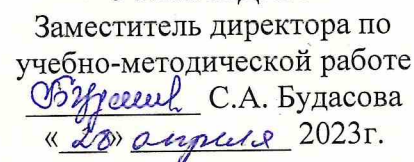 Заместитель директора по
учебно-методической работе
С.А. Будасова
«20» апреля 2023г.